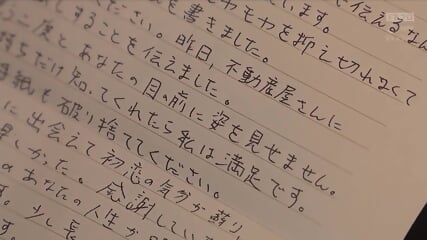 います。
で伝えるなん
モヤモヤを抑え切れなくて
を書きました。
ださい。昨日、不動産屋さんに
することを伝えました。
二度とあなたの目の前に姿を見せません。
持ちだけ知ってくれたら私は満足です。
手紙も破り捨ててください。
に出会えて初恋の気分が蘇り
しかった。感謝してい
あなたの人生が
す。少し長